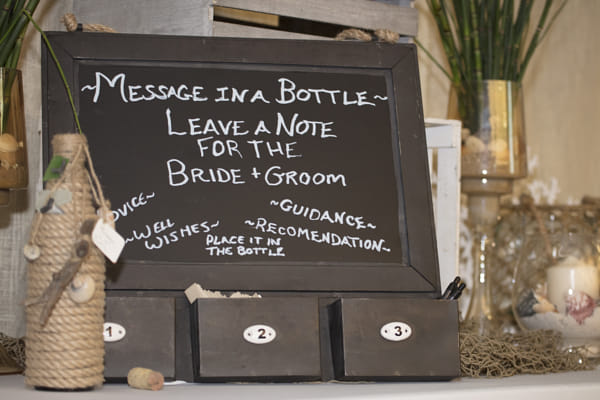 ~MESSAGE IN A BOTTLE~
LEAVE A NOTE
FOR THE
BRIDE + GROOM
~GUIDANCE~
~WELL WISHES~
~RECOMENDATION~
PLACE IT IN
THE BOTTLE
1
2
3